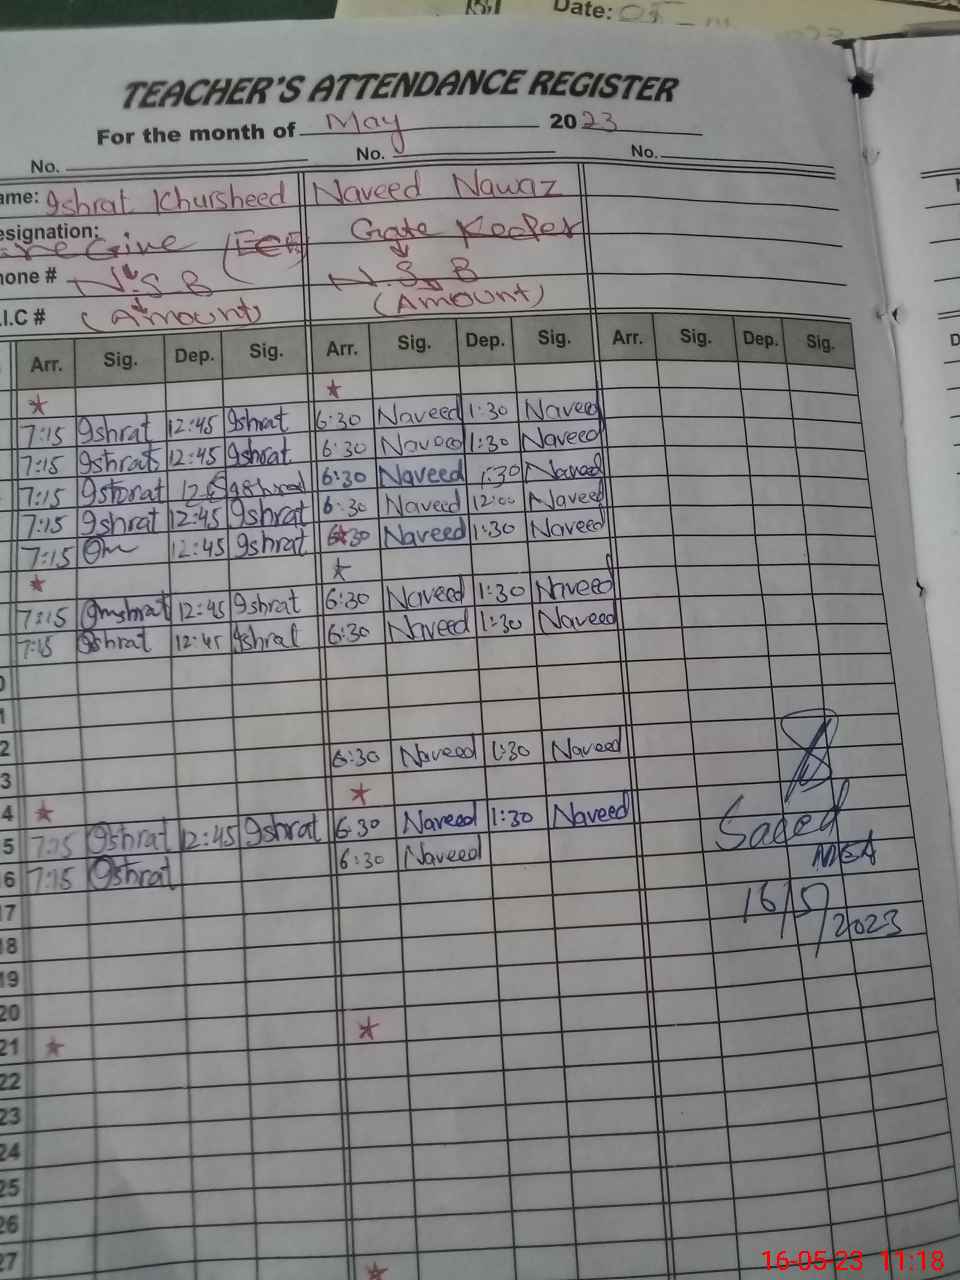 Date: 05
TEACHER'S ATTENDANCE REGISTER
For the month of May 2023
No. No. No.
ame: Ishrat Khursheed Naveed Nawaz
esignation: Gate Keeper
are Give (ECE)
hone # N.S.B N.S.B
.I.C # (Amount) (Amount)
Arr. Sig. Dep. Sig. Arr. Sig. Dep. Sig. Arr. Sig. Dep. Sig.
7:15 Ishrat 12:45 Ishrat 6:30 Naveed 1:30 Naveed
7:15 Ishrat 12:45 Ishrat 6:30 Naveed 1:30 Naveed
7:15 Ishrat Ishrat 6:30 Naveed 1:30 Naveed
7:15 Ishrat 12:45 Ishrat 6:30 Naveed 12:00 Naveed
7:15 12:45 Ishrat 6:30 Naveed 1:30 Naveed
7:15 12:45 Ishrat 6:30 Naveed 1:30 Naveed
7:15 Ishrat 12:45 Ishrat 6:30 Naveed 1:30 Naveed
0
1
2 6:30 Naveed 1:30 Naveed
3
4
5 7:15 Ishrat 12:45 Ishrat 6:30 Naveed 1:30 Naveed
6 7:15 Ishrat 6:30 Naveed
Saeed
MEA
16/5/2023
17
18
19
20
21
22
23
24
25
26
27
16-05-23 11:18